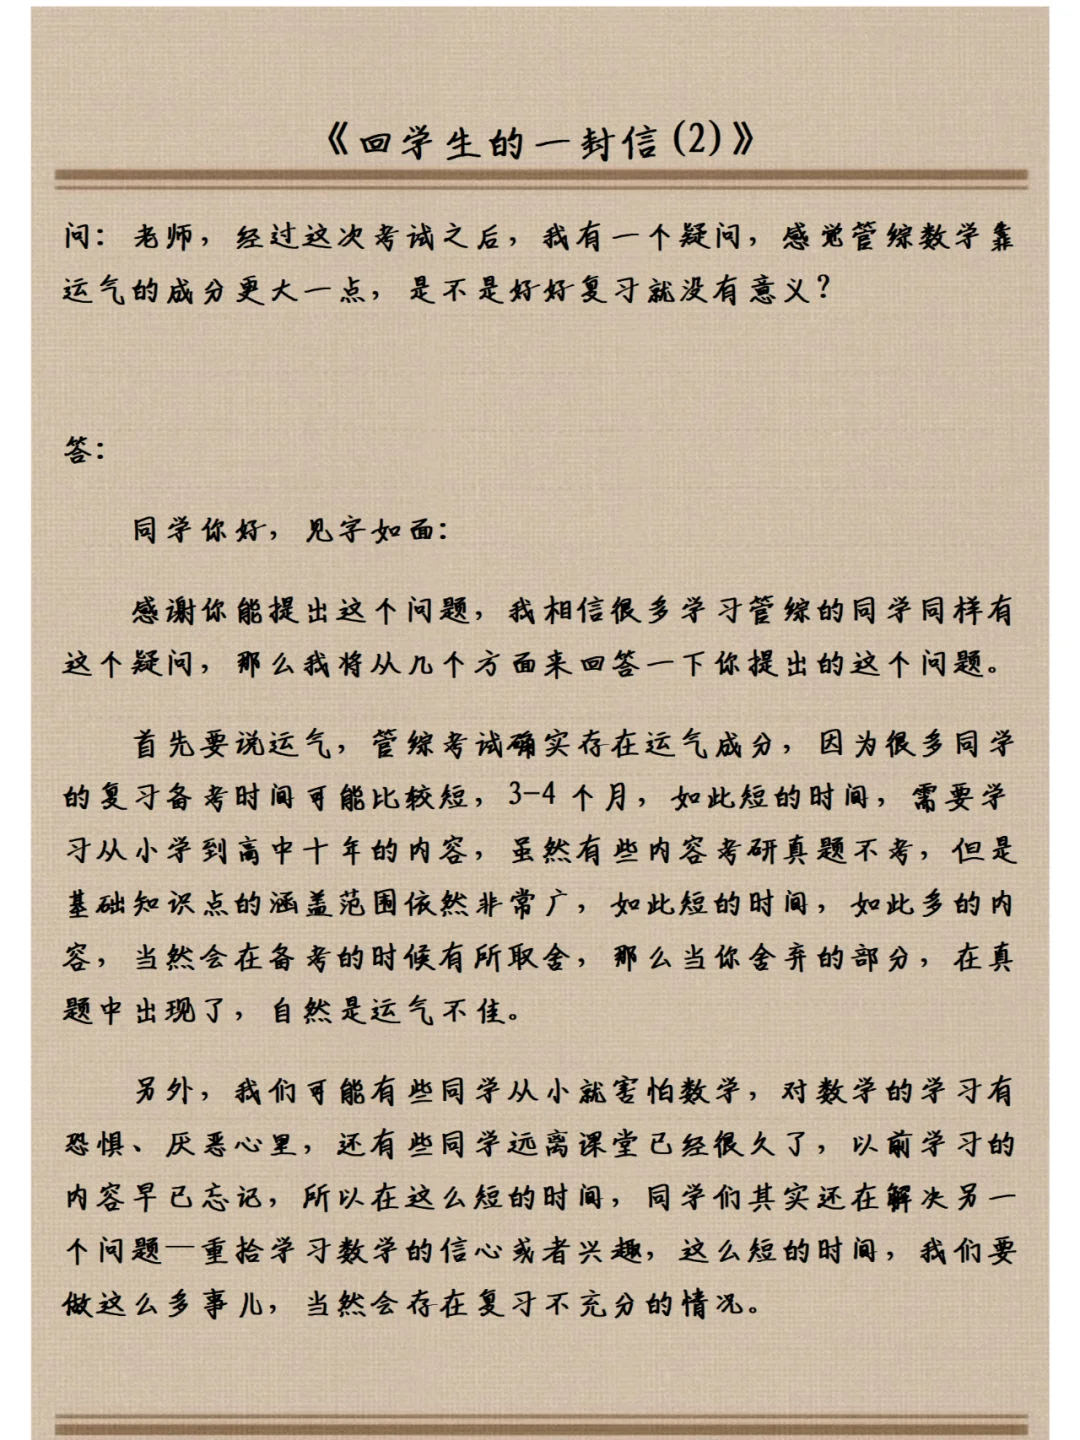 《回学生的一封信(2)》
问：老师，经过这次考试之后，我有一个疑问，感觉管综数学靠
运气的成分更大一点，是不是好好复习就没有意义？
答：
同学你好，见字如面：
感谢你能提出这个问题，我相信很多学习管综的同学同样有
这个疑问，那么我将从几个方面来回答一下你提出的这个问题。
首先要说运气，管综考试确实存在运气成分，因为很多同学
的复习备考时间可能比较短，3-4个月，如此短的时间，需要学
习从小学到高中十年的内容，虽然有些内容考研真题不考，但是
基础知识点的涵盖范围依然非常广，如此短的时间，如此多的内
容，当然会在备考的时候有所取舍，那么当你舍弃的部分，在真
题中出现了，自然是运气不佳。
另外，我们可能有些同学从小就害怕数学，对数学的学习有
恐惧、厌恶心里，还有些同学远离课堂已经很久了，以前学习的
内容早已忘记，所以在这么短的时间，同学们其实还在解决另一
个问题—重拾学习数学的信心或者兴趣，这么短的时间，我们要
做这么多事儿，当然会存在复习不充分的情况。